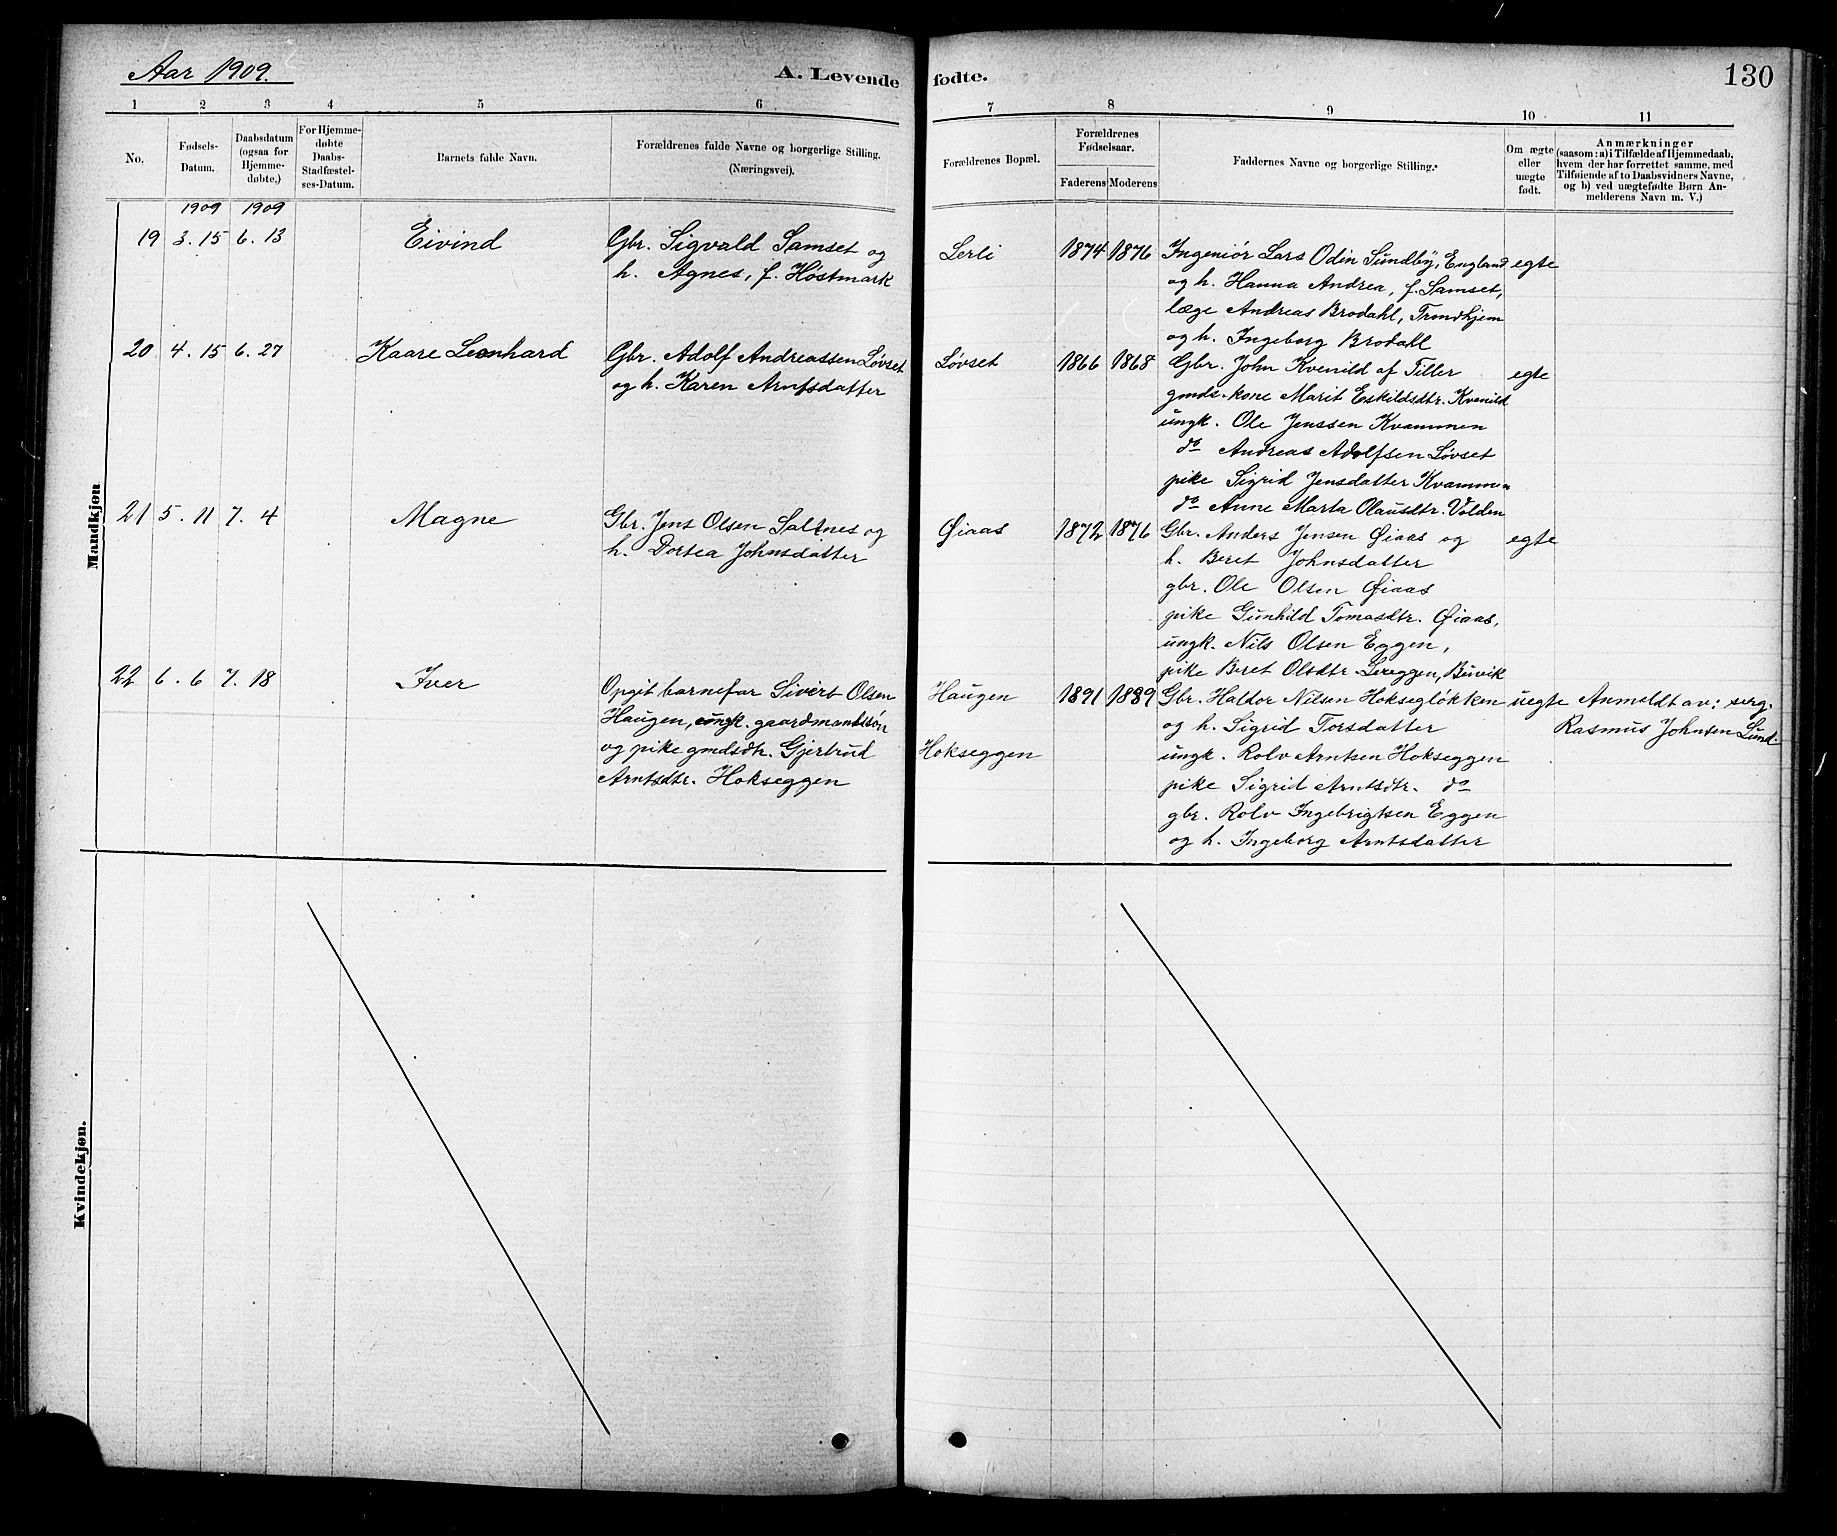 Aar 1909.
A. Levende fødte.
130
1 2 3 4 5 6 7 8 9 10 11
No.
Fødsels-
Datum.
Daabsdatum
(ogsaa for
Hjemme-
døbte.)
For Hjemme-
døbte
Daabs-
Stadfæstel-
ses-Datum.
Barnets fulde Navn.
Forældrenes fulde Navne og borgerlige Stilling.
(Næringsvei).
Forældrenes Bopæl.
Forældrenes
Fødselsaar.
Faderens Moderens
Faddernes Navne og borgerlige Stilling.
Om ægte
eller
uægte
født.
Anmærkninger
(saasom: a) i Tilfælde af Hjemmedaab,
hvem der har forrettet samme, med
Tilføiende af to Daabsvidners Navne,
og b) ved uægtefødte Børn An-
melderens Navn m. V.)
Mandkjøn
1909 1909
19 3. 15 6. 13
Eivind
Gbr. Sigvald Samset og
h. Agnes, f. Høstmark
Lerli
1874 1876
Ingeniør Lars Odin Sundby, England
og h. Hanna Andrea, f. Samset,
læge Andreas Brodahl, Trondhjem
og h. Ingeborg Brodahl
egte
20 4. 15 6. 27
Kaare Leonhard
Gbr. Adolf Andreassen Løvset
og h. Karen Arntsdatter
Løvset
1866 1868
Gbr. John Kvenild af Tiller
gmds.kone Marit Eskildsdtr. Kvenild
ungk. Ole Jenssen Kvammen
do Andreas Adolfsen Løvset
pike Sigrid Jensdatter Kvammen
do Anne Marta Olausdtr. Volden
egte
21 5. 11 7. 4
Magne
Gbr. Jens Olsen Saltnes og
h. Dortea Johnsdatter
Øiaas
1872 1876
Gbr. Anders Jensen Øiaas og
h. Beret Johnsdatter
gbr. Ole Olsen Øiaas
pike Gunhild Tomasdtr. Øiaas,
ungk. Nils Olsen Eggen,
pike Beret Olsdtr Lereggen, Buvik
egte
22 6. 6 7. 18
Iver
Opgit barnefar Sivert Olsen
Haugen, ungk. gaardmandssøn
og pike gmdsdtr. Gjertrud
Arntsdtr. Hokseggen
Haugen
Hokseggen
1891 1889
Gbr. Haldor Nilsen Hoksegløkken
og h. Sigrid Torsdatter
ungk. Rolv Arntsen Hokseggen
pike Sigrid Arntsdtr. do
gbr. Rolv Ingebrigtsen Eggen
og h. Ingeborg Arntsdatter
uegte
Anmeldt av: serg.
Rasmus Johnsen Lund
Kvindekjøn.